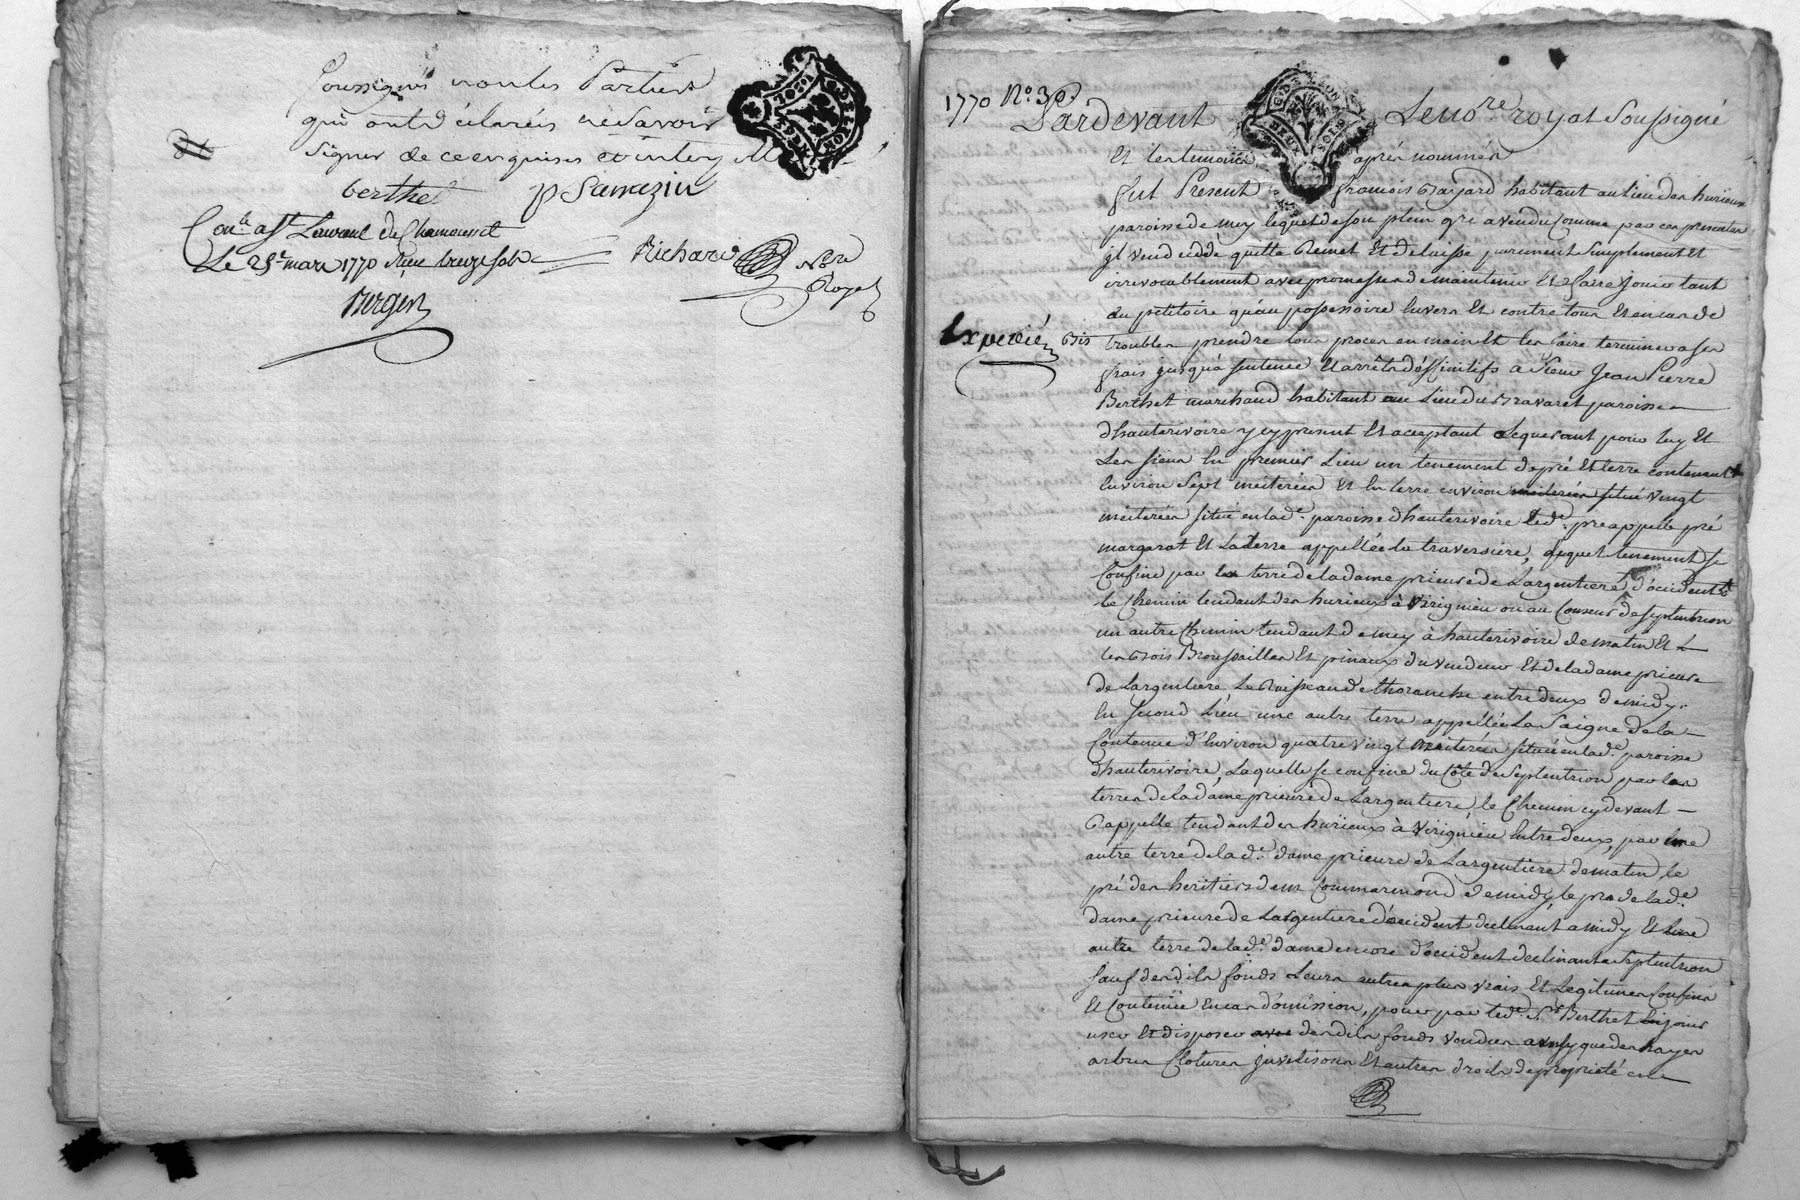 soussignés non les Parties
qui ont déclarés ne Savoir
signer de ce enquises
berthet P Sarrazin
Con.le a St Laurent de Chamousset
Le 25e mars 1770 Reçu treize sols
Richard Nre
Royal
1770 No. 30.
Pardevant Le no.re royal Soussigné
Et les temoins après nommés
fut Present françois Bayard habitant au lieu des hurieux
paroisse de mey lequel de son plein gré a vendu comme par ces presentes
jl vend cedde quitte Remet Et delaisse purement Simplement Et
irrevocablement avec promesses de maintenir Et faire Jouir tant
au petitoire qu'au possessoire Envers Et contre tous Et en cas de
Expedié
troubles prendre tous proces en main Et les faire terminer a ses
frais jusqu'à sentence Et arrêts déffinitifs à Sieur Jean Pierre
Berthet marchand habitant au Lieu du Bravaret paroisse
dhauterivoire y cy present Et acceptant acquerant pour luy Et
Les siens En premier Lieu un tenement de pré Et terre contenant
Environ Sept meiterées Et En terre environ meiterées situé vingt
meiterées situé en lad.e paroisse dhauterivoire led.t pré appellé pré
margarat Et La terre appellée la traversiere, duquel tenement se
Confine par la terre de la dame prieure de Largentiere d'occident
le Chemin tendant des hurieux à Virignieu ou au Couseur de septentrion
un autre Chemin tendant de mey à hauterivoire de matin Et
les Bois Broussailles Et pinaux du vendeur Et de la dame prieure
de Largentiere, Le Ruisseau de thoranche entre deux de midy.
En second Lieu une autre terre appellée La Saigne de la
Contenue d'Environ quatre vingt meiterées située en lad.e paroisse
dhauterivoire, Laquelle se confine du Côté de Septentrion par les
terres de la dame prieure de Largentiere le Chemin cy devant
Rappellé tendant des hurieux à Virignieu Entre deux, par Une
autre terre de lad.e dame prieure de Largentiere de matin le
pré des heritiers de m.r Commarmond de midy le pré de lad.e
dame prieure de Largentiere d'occident declinant a midy Et Une
autre terre de lad.e dame encore d'occident declinant a Septentrion
sauf desdits fonds Leurs autres plus vrais Et Legitimes Confins
Et Contenüe En cas d'omission, pour par led.t S.r Berthet En jouir
user Et disposer avec desdits fonds vendus ainsy que des hayes
arbres Clotures Et autres droits de proprieté